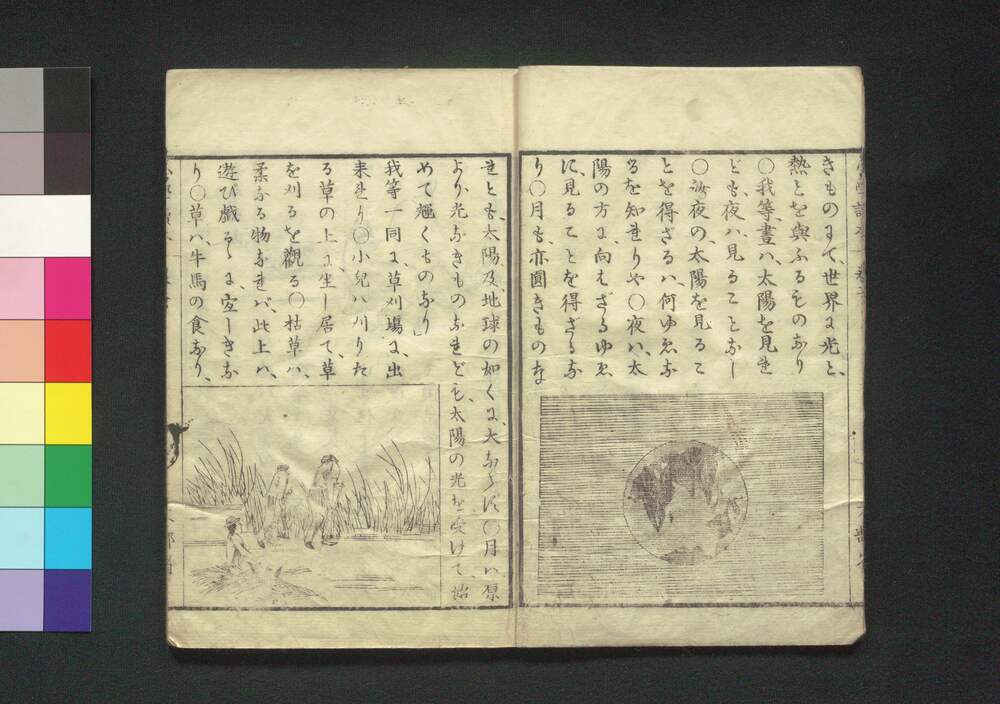 きものにて、世界に光と、
熱とを與ふるものなり
〇我等、晝ハ、太陽を見れ
ども、夜ハ、見ることなし
〇汝夜の、太陽を見るこ
とを得ざるハ、何ゆゑな
るを知れりや〇夜ハ、太
陽の方に、向はざるゆゑ
に、見ることを得ざるな
り〇月も、亦圓きものな
れとも、太陽及、地球の如くに、大ならず〇月ハ、原
より光なきものなれども、太陽の光を受けて、始
めて輝くものなり」
我等一同に、草刈場に、出
来れり〇小兒ハ刈りた
る草の上に坐し居て、草
を刈るを觀る〇枯草ハ、
柔なる物なれバ、此上ハ、
遊び戯るゝに、宜しきな
り〇草ハ、牛馬の食なり、